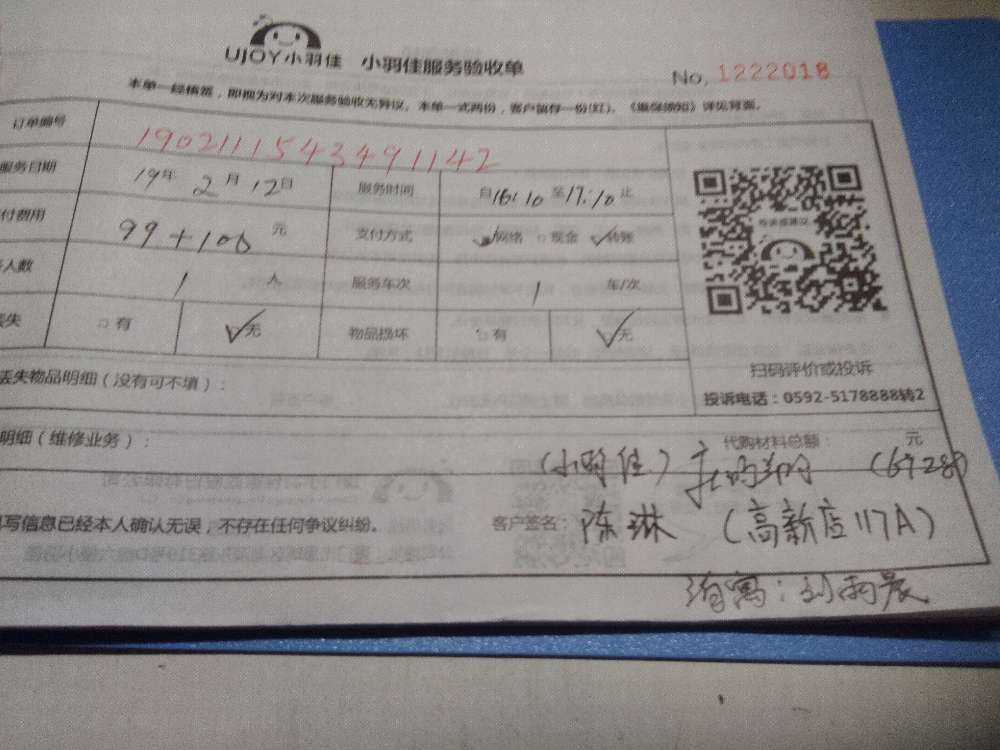 UJOY小羽佳 小羽佳服务验收单
No. 1222018
本单一经核签，即视为对本次服务验收无异议，本单一式两份，客户留存一份(红)，《维保须知》详见背面。
订单编号 1902111543491142
服务日期 19年2月12日 服务时间 自16:10至17:10止
付费用 99+100 元 支付方式 网络 现金 转账
人数 1 人 服务车次 1 车/次
丢失 有 无 物品损坏 有 无
投诉或建议
扫码评价或投诉
投诉电话：0592-5178888转2
丢失物品明细（没有可不填）：
明细（维修业务）： 代购材料总额： 元
(小羽佳)
写信息已经本人确认无误，不存在任何争议纠纷。 客户签名： 陈琳 (高新店117A)